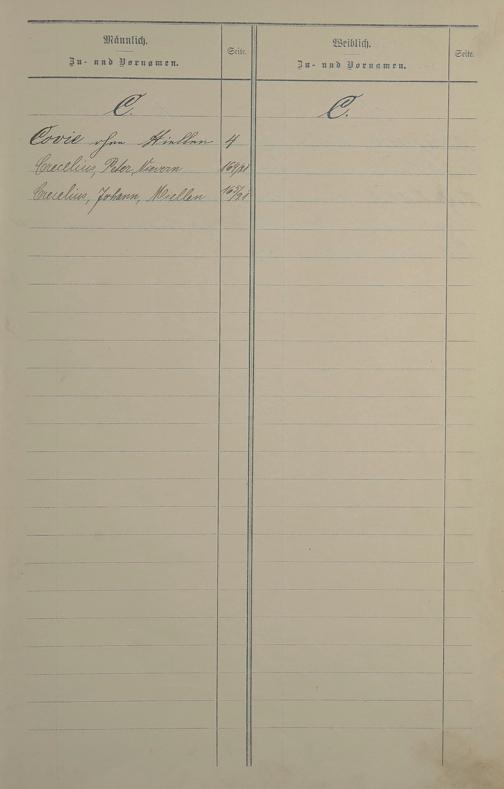 Männlich.
Zu- und Vornamen.
Seite.
Weiblich.
Zu- und Vornamen.
Seite.
C.
C.
Covie ohne Miellen 4
Crecelius, Peter, Nievern 169/21
Crecelius, Johann, Miellen